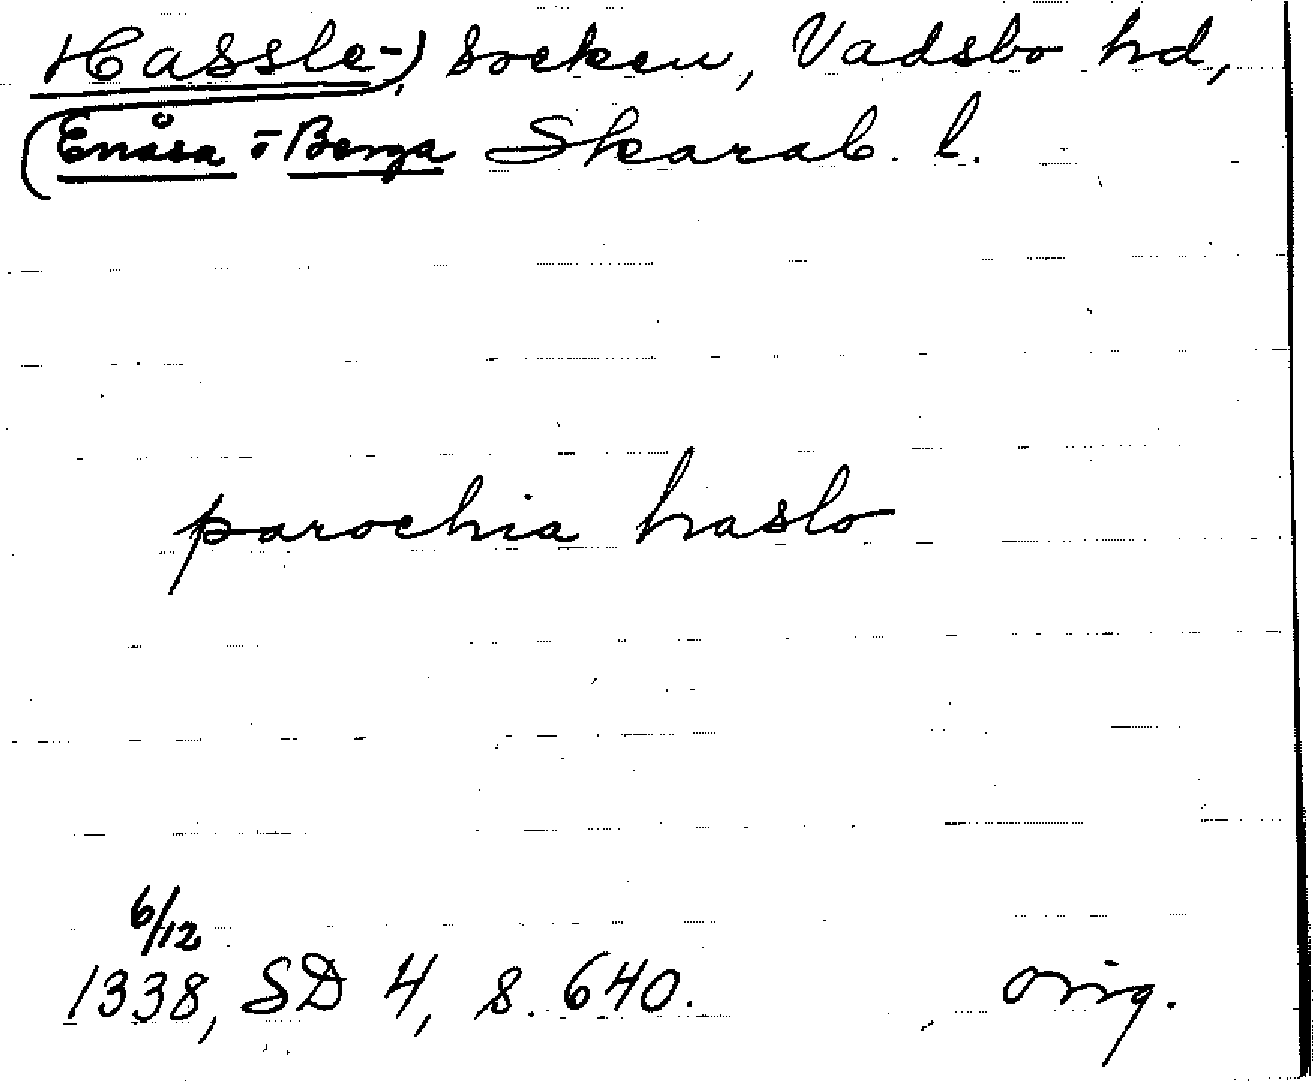 Hassle-) socken, Vadsbo hd,
(Enåsa o Berga Skarab. l.
parochia haslo
6/12
1338, SD 4, s. 640. orig.